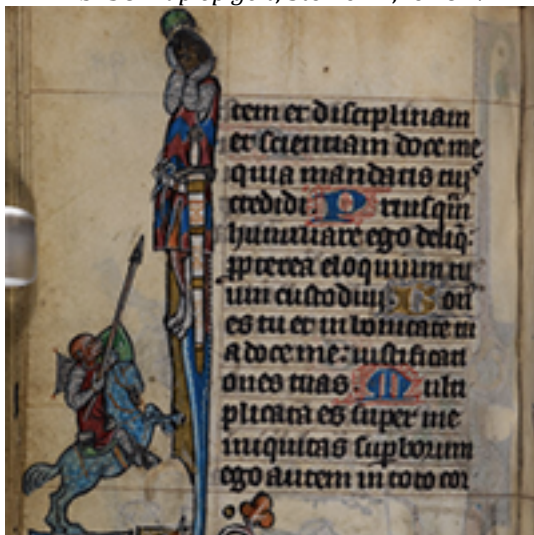 tem et disciplinam
et scientiam doce me
quia mandatis tuis
credidi. Priusqm
humiliare ego deliq:
ppterea eloquium tu
um custodiui. Bon
es tu et in bonitate tu
a doce me: iustificati
ones tuas. Multi
plicata es super me
iniquitas supborum
ego autem in toto cor